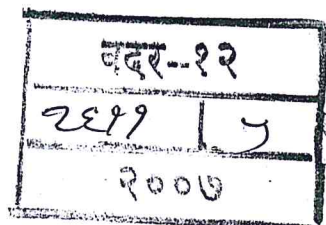 बदर--१२
२६११ | ५
२००७